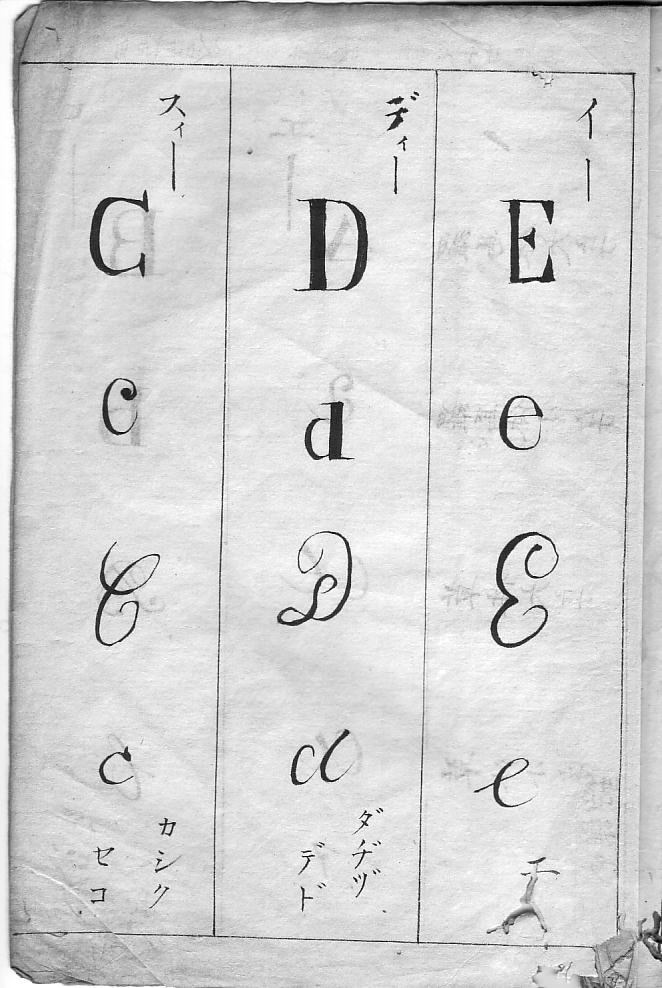 イー
E
e
E
e
ディー
D
d
D
d
ダヂヅ
デド
スィー
C
c
C
c
カシク
セコ